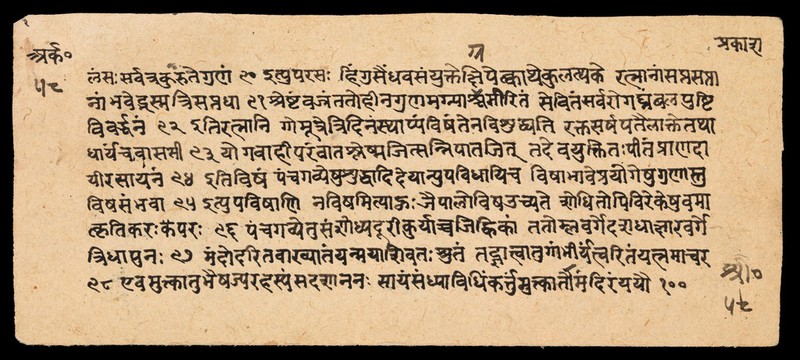 अर्क०
५८
प्रकाश
लंसः सर्वत्रकुरुतेगुणं ९० इत्युपरसः हिंगुसैंधवसंयुक्तेक्षिपेत्क्वाथेकुलत्थके रत्नानांसप्तसप्ता
नां भवेद्भस्मत्रिसप्तधा ९१ श्रेष्टंवज्रंततोहीनगुणमग्या समीरितं सेवितंसर्वरोगघ्नंबलपुष्टि
विवर्द्धनं ९२ इतिरत्नानि गोमूत्रेत्रिदिनंस्थाप्पंविषंतेनविशुद्ध्यति रक्तसर्षपतैलाक्तेतथा
धार्यचवासमी ९३ योगवाहीपरंवातश्लेष्मजित्सन्निपातजित् तदेवयुक्तितःपीतंप्राणदा
यीरसायनं ९४ इतिविषं पंचगव्येषुशुद्धादिदेयान्युपविषायिच विषाभावेप्रयोगेषुगुणास्तु
विषसंभवा ९५ इत्युपविषाणि नविषमित्याहुः जैपालोविषउच्यते शोधितोपिविरेकेषुवमा
त्कृतिकरःकंपरः ९६ पंचगव्येतुसंशोध्यदूरीकुर्याच्चजिह्विकां ततोम्लवर्गेदशधाक्षारवर्गे
त्रिधापुनः ९७ मंदोदरितवाख्यातंयन्मयाशिवतःश्रुतं तद्ज्ञात्वातुगांभीर्यत्वरितंयत्नमाचर
९८ एवमुक्त्कातुभैषज्यरहस्यंसदशाननः सायंसंध्याविधिंकर्त्तुमुत्कार्तोमंदिरंययौ १००
५८